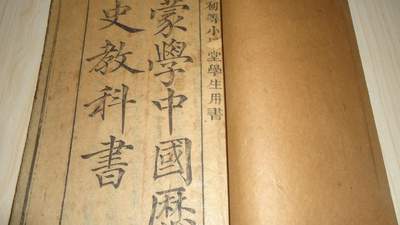 初等小堂學生用書
蒙學中國歷
史教科書